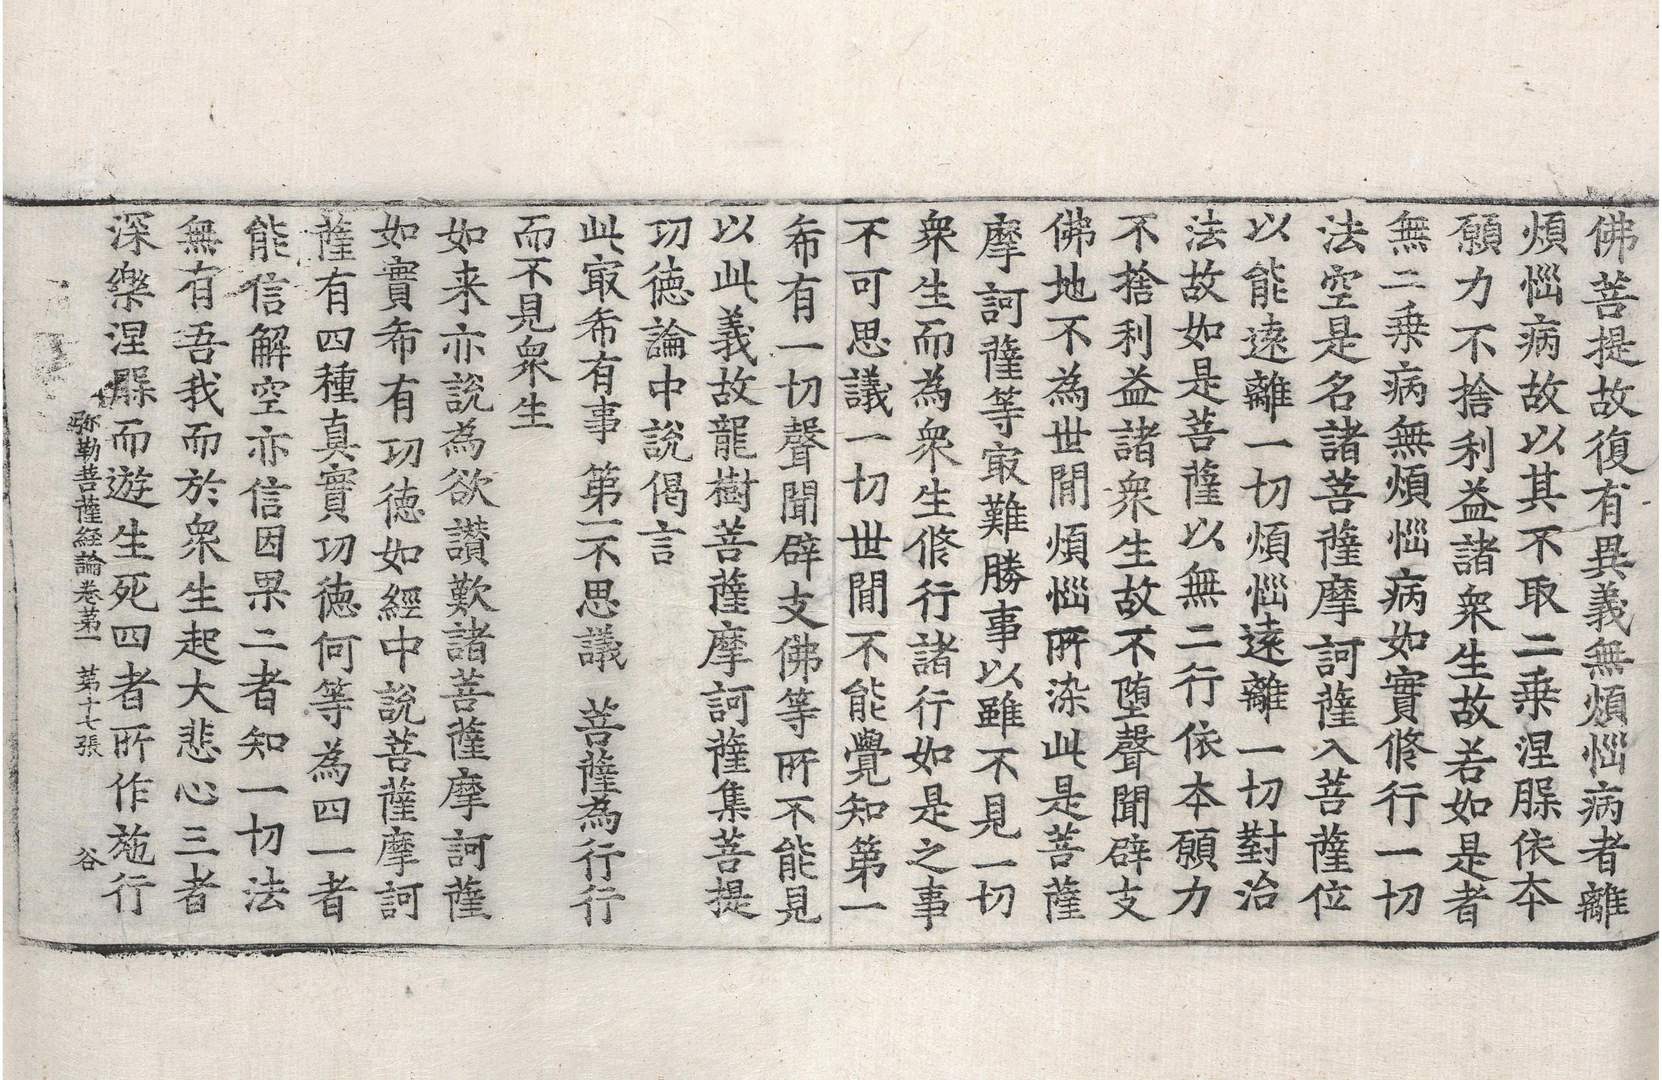 佛菩提故復有異義無煩惱病者離
煩惱病故以其不取二乗涅槃依本
願力不捨利益諸衆生故若如是者
無二乗病無煩惱病如實修行一切
法空是名諸菩薩摩訶薩入菩薩位
以能遠離一切煩惱遠離一切對治
法故如是菩薩以無二行依本願力
不捨利益諸衆生故不墮聲聞辟支
佛地不為世間煩惱所染此是菩薩
摩訶薩等㝡難勝事以雖不見一切
衆生而為衆生修行諸行如是之事
不可思議一切世間不能覺知第一
希有一切聲聞辟支佛等所不能見
以此義故龍樹菩薩摩訶薩集菩提
功徳論中說偈言
此㝡希有事 第一不思議 菩薩為行行
而不見衆生
如来亦說為欲讃歎諸菩薩摩訶薩
如實希有功徳如經中說菩薩摩訶
薩有四種真實功徳何等為四一者
能信解空亦信因果二者知一切法
無有吾我而於衆生起大悲心三者
深樂涅槃而遊生死四者所作施行
弥勒菩薩経論卷苐一 第十七張 谷